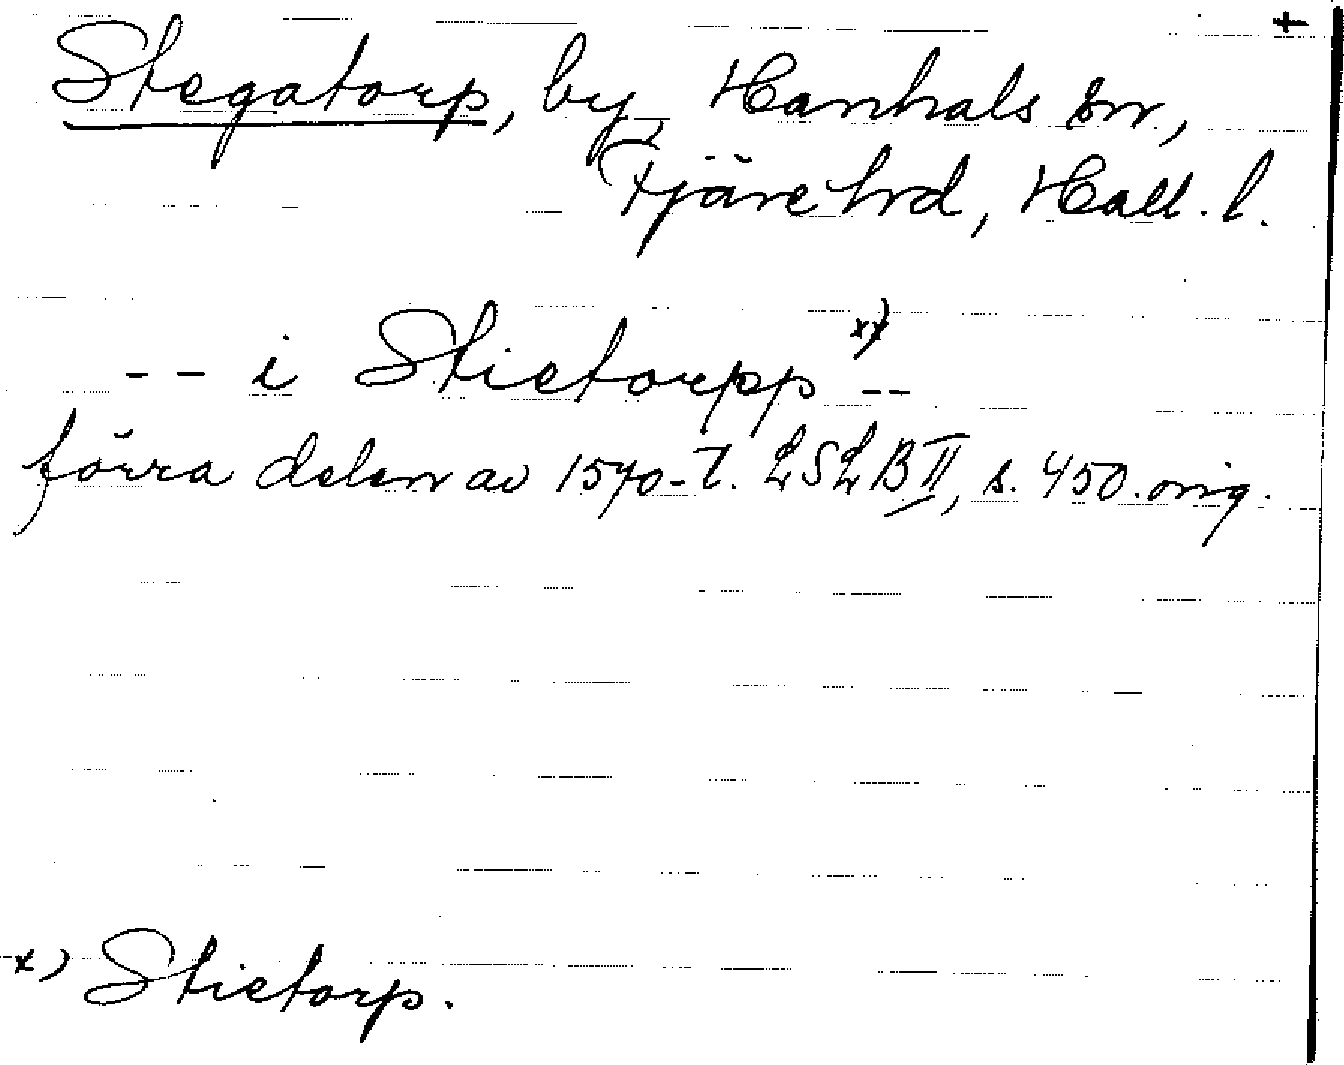 +
Stegatorp, by, Hanhals sn.,
Fjäre hrd, Hall. l.
-- i Stietorpp x) --
förra delen av 1570-t. LSLB II, s. 450. orig.
x) Stietorp.